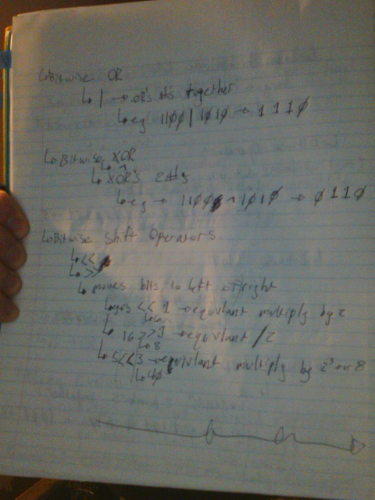 ↳ Bitwise OR
↳ | → OR's bits together
↳ eg 1100 | 1010 → 1110
↳ Bitwise XOR
↳ XOR's
↳ eg → 1100 ^ 1010 → 0110
↳ Bitwise Shift Operators
↳ <<
↳ >>
↳ moves bits to left or right
<< 1 → equvilant multiply by 2
↳ 16 >> 1 → equvilant /2
↳ 8
↳ 5 << 3 → equvilant multiply by 2³ or 8
↳ 40